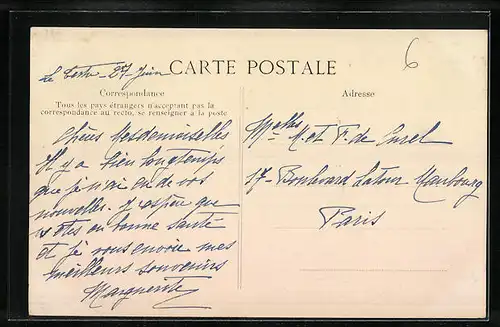 Le Teste - 27 - Juin
CARTE POSTALE
6
Correspondance
Tous les pays étrangers n'acceptant pas la
correspondance au recto, se renseigner à la poste
Chères Mesdemoiselles
Il y a bien longtemps
que je n'ai eu de vos
nouvelles. J'espère que
êtes en bonne santé
et je vous envoie mes
meilleurs souvenirs
Marguerite
Adresse
Melles M. et F. de
17 - Boulevard Latour Maubourg
Paris